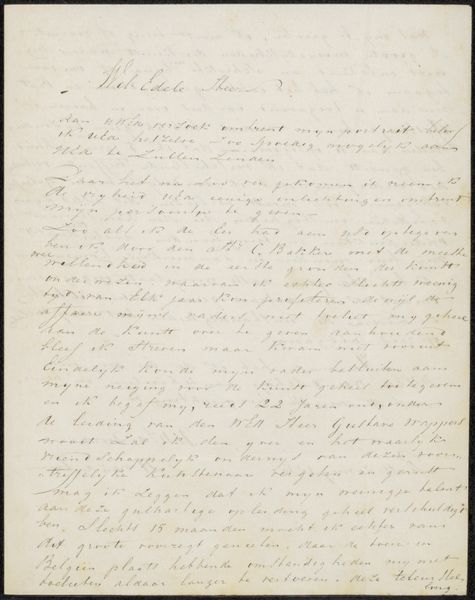 Wel Edele Heer
Aan UWEd verzoek omtrent mijn portrait beloof
ik UEd hetzelve zoo spoedig mogelijk aan
UEd te zullen zenden
Daar het na zoo voorgekomen is neem ik
de vrijheid UEd eenige inlichtingen omtrent
mijn persoontje te geven
Zoo als ik de Eer had aan UEd opte geven
ben ik door den Hr C. Bakker voor de meeste
welwillendheid in de eerste gronden der kunst
onderwezen waarvan ik echter slechts weinig
tijd van Elk jaar kon profiteren dewijl de
affaire mijns vaders niet toeliet my geheel
aan de kunst over te geven aanhoudend
bleef ik streven maar kwam niet vooruit
Eindelyk konde mijn vader besluiten aan
myne neiging voor de kunst geheel toetegeven
en ik begaf my, reeds 22 Jaren oud, onder
de leiding van den WEd Heer Gustave Wappers
nooit zal ik den yver en het waarlyk
vriendschappelyk onderwys van dezen voor-
treffelyke Kunstenaar vergeten en gerust
mag ik zeggen dat ik mijn weinigje talent
aan deze gulhartige opleiding geheel verschuldigd
ben. Slechts 15 maanden mocht ik echter van
dit groote voorregt genieten, daar de toen in
Belgien plaats hebbende omstandigheden my niet
toelieten aldaar langer te vertoeven. deze